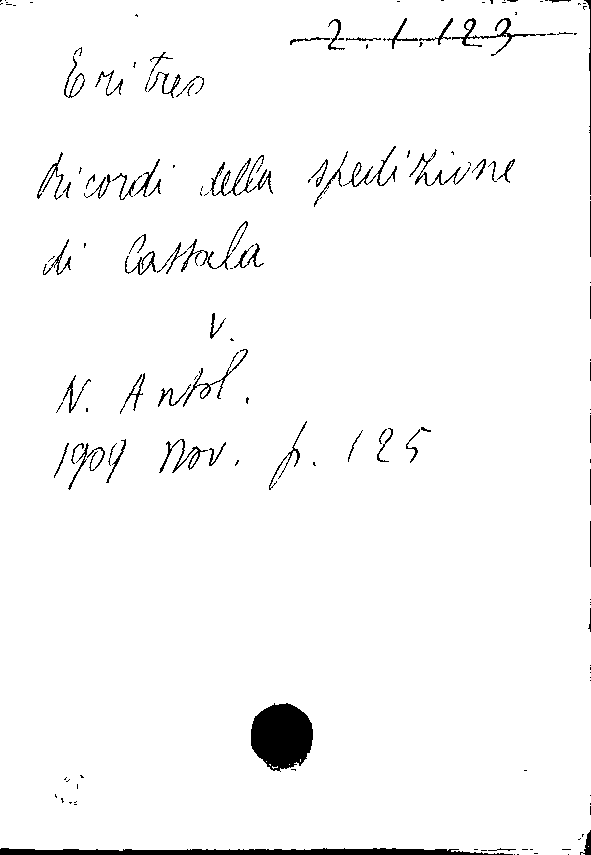 2.1.123
Eritrea
Ricordi della spedizione
di Cassala
v.
N. Antol.
1909 Nov. p. 125